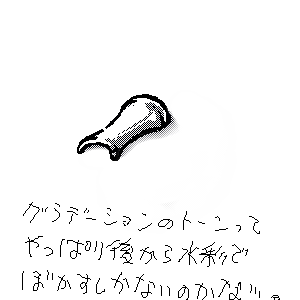 グラデーションのトーンって
やっぱり後から水彩で
ぼかすしかないのかな…。